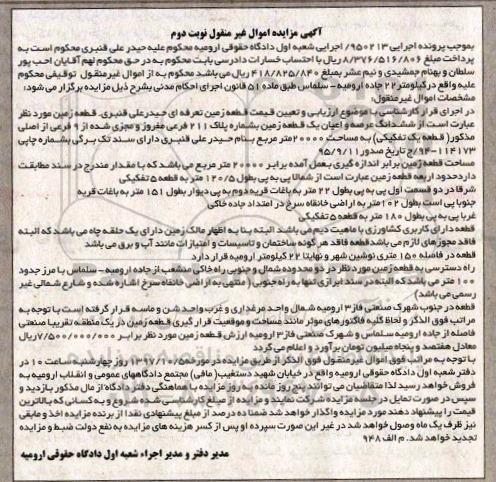 آگهی مزایده اموال غیر منقول نوبت دوم
بموجب پرونده اجرایی ۹۵۰۲۱۳/ اجرایی شعبه اول دادگاه حقوقی ارومیه محکوم علیه حیدر علی قنبری محکوم است به
پرداخت مبلغ ۸/۳۷۶/۵۱۶/۸۰۶ ریال با احتساب خسارات دادرسی بابت محکوم به در حق محکوم لهم آقایان احب پور
سلطان و بهنام جمشیدی و نیم عشر بمبلغ ۴۱۸/۸۲۵/۸۴۰ ریال می باشد محکوم به از اموال غیرمنقول توقیفی محکوم
علیه واقع درکیلومتر۲۲ جاده ارومیه - سلماس طبق ماده ۵۱ قانون اجرای احکام مدنی بشرح ذیل مزایده برگزار می شود:
مشخصات اموال غیرمنقول:
در اجرای قرار کارشناسی با موضوع ارزیابی و تعیین قیمت قطعه زمین تعرفه ای حیدرعلی قنبری. قطعه زمین مورد نظر
عبارت است از ششدانگ عرصه و اعیان یک قطعه زمین بشماره پلاک ۲۱۱ فرعی مفروز و مجزی شده از ۹ فرعی از اصلی
مذکور( قطعه یک تفکیکی) به مساحت ۲۰۰۰۰ متر مربع بنام حیدر علی قنبری دارای سند تک برگی بشماره چاپی
۱۱۴۱۷۳-ج/۹۴ تاریخ صدور ۹۵/۹/۱۱
مساحت قطعه زمین برابر اندازه گیری بعمل آمده برابر ۲۰۰۰۰ متر مربع می باشد که با مقدار مندرج در سند مطابقت
داردحدود اربعه قطعه زمین عبارت است از شمالا پی به پی بطول ۱۲۰/۵ متر به قطعه ۵ تفکیکی
شرقا در دو قسمت اول پی به پی بطول ۲۲ متر به باغات قریه دوم به پی دیوار بطول ۱۵۱ متر به باغات قریه
جنوبا پی است بطول ۱۰۲ متر به اراضی خانقاه سرخ در امتداد جاده خاکی
غربا پی به پی بطول ۱۸۰ متر به قطعه ۵ تفکیکی
قطعه دارای کاربری کشاورزی با ماهیت دیم می باشد البته بنا به اظهار مالک زمین دارای یک حلقه چاه می باشد که البته
فاقد مجوزهای لازم می باشد قطعه فاقد هر گونه ساختمان و تاسیسات و امتیازات مانند آب و برق می باشد
قطعه در فاصله ۱۵۰ متری نوشین شهر و نهایتا ۲۲ کیلومتر ارومیه قرار دارد
راه دسترسی به قطعه زمین مورد نظر در دو محدوده شمال و جنوبی راه خاکی منشعب از جاده ارومیه - سلماس با مرز جدود
۱۰۰ متر می باشد که البته در سند ابرازی تنها به راه جنوبی ( منتهی به اراضی خانقاه سرخ اشاره شده و شارع شمالی غیر
رسمی می باشد)
قطعه در جنوب شهرک صنعتی فاز۳ ارومیه شمال واحد مرغداری و غرب واحد شن و ماسه قرار گرفته است با توجه به
مراتب فوق الذکر و لحاظ کلیه فاکتورهای موثر مانند مساحت و موقعیت قرار گیری قطعه زمین در یک منطقه تقریبا صنعتی
فاصله از جاده ارومیه سلماس و شهرک صنعتی فاز۳ ارومیه ارزش قطعه زمین مورد نظر برابر ۷/۵۰۰/۰۰۰/۰۰۰ ریال
معادل هفتصد و پنجاه میلیون تومان برآورد و اعلام می گردد
با توجه به مراتب فوق اموال غیرمنقول فوق الذکر از طریق مزایده در مورخه ۱۳۹۷/۱۰/۵ روز چهارشنبه ساعت ۱۰ در
دفتر شعبه اول دادگاه حقوقی ارومیه واقع در خیابان شهید دستغیب(مافی) مجتمع دادگاههای عمومی و انقلاب ارومیه به
فروش خواهد رسید لذا متقاضیان می توانند پنج روز مانده به روز مزایده با هماهنگی دفتر دادگاه از مال مذکور بازدید و
سپس در صورت تمایل در جلسه مزایده شرکت نمایند و مزایده از مبلغ کارشناسی شده شروع و به کسانی که بالاترین
قیمت را پیشنهاد دهند مورد مزایده واگذار خواهد شد ضمنا ده درصد از مبلغ پیشنهادی نقدا از برنده مزایده اخذ و مابقی
نیز ظرف یک ماه وصول خواهد شد در غیر این صورت سپرده او پس از کسر هزینه های مزایده به نفع دولت ضبط و مزایده
تجدید خواهد شد. م الف ۹۴۸
مدیر دفتر و مدیر اجراء شعبه اول دادگاه حقوقی ارومیه